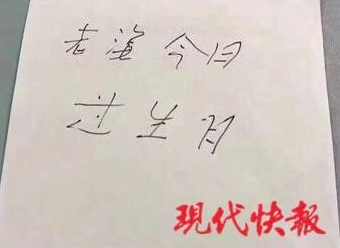 老海今日
过生日
現代快報